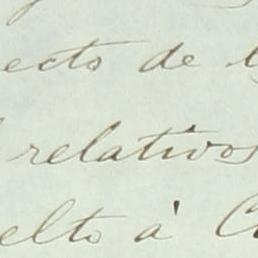 ecto de
relativos
elto à